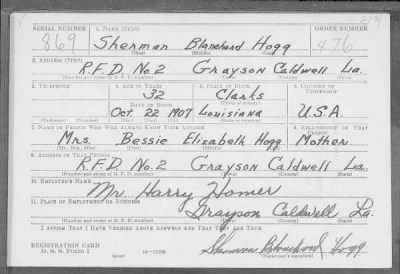 SERIAL NUMBER 1. NAME (Print) ORDER NUMBER
869 Sherman Blanchard Hogg 476
(First) (Middle) (Last)
2. ADDRESS (Print)
R.F.D. No.2 Grayson Caldwell La.
(Number and street or R. F. D. number) (Town) (County) (State)
3. TELEPHONE 4. AGE IN YEARS 5. PLACE OF BIRTH 6. COUNTRY OF CITIZENSHIP
32 Clarks
DATE OF BIRTH (Town or county)
Oct 22 1907 Louisiana U.S.A.
(Exchange) (Number) (Mo.) (Day) (Yr.) (State or country)
7. NAME OF PERSON WHO WILL ALWAYS KNOW YOUR ADDRESS 8. RELATIONSHIP OF THAT PERSON
Mrs. Bessie Elizabeth Hogg Mother
(Mr., Mrs., Miss) (First) (Middle) (Last)
9. ADDRESS OF THAT PERSON
R.F.D. No.2 Grayson Caldwell La.
(Number and street or R. F. D. number) (Town) (County) (State)
10. EMPLOYER'S NAME
Mr. Harry Homer
11. PLACE OF EMPLOYMENT OR BUSINESS
Grayson Caldwell La.
(Number and street or R. F. D. number) (Town) (County) (State)
I AFFIRM THAT I HAVE VERIFIED ABOVE ANSWERS AND THAT THEY ARE TRUE.
REGISTRATION CARD
D. S. S. FORM 1 Sherman Blanchard Hogg
(over) (Registrant's signature)